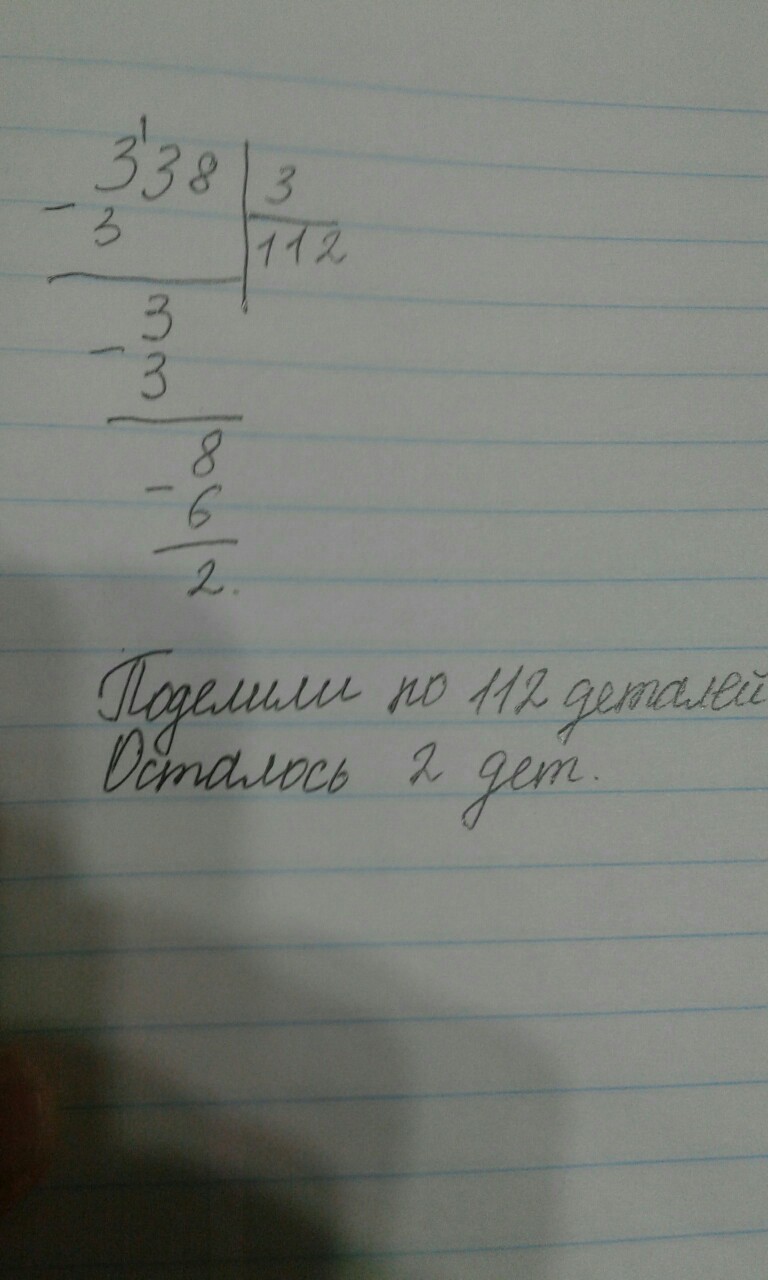 3'38 | 3
- 3 | 112
3
- 3
8
- 6
2.
Поделили по 112 деталей
Осталось 2 дет.